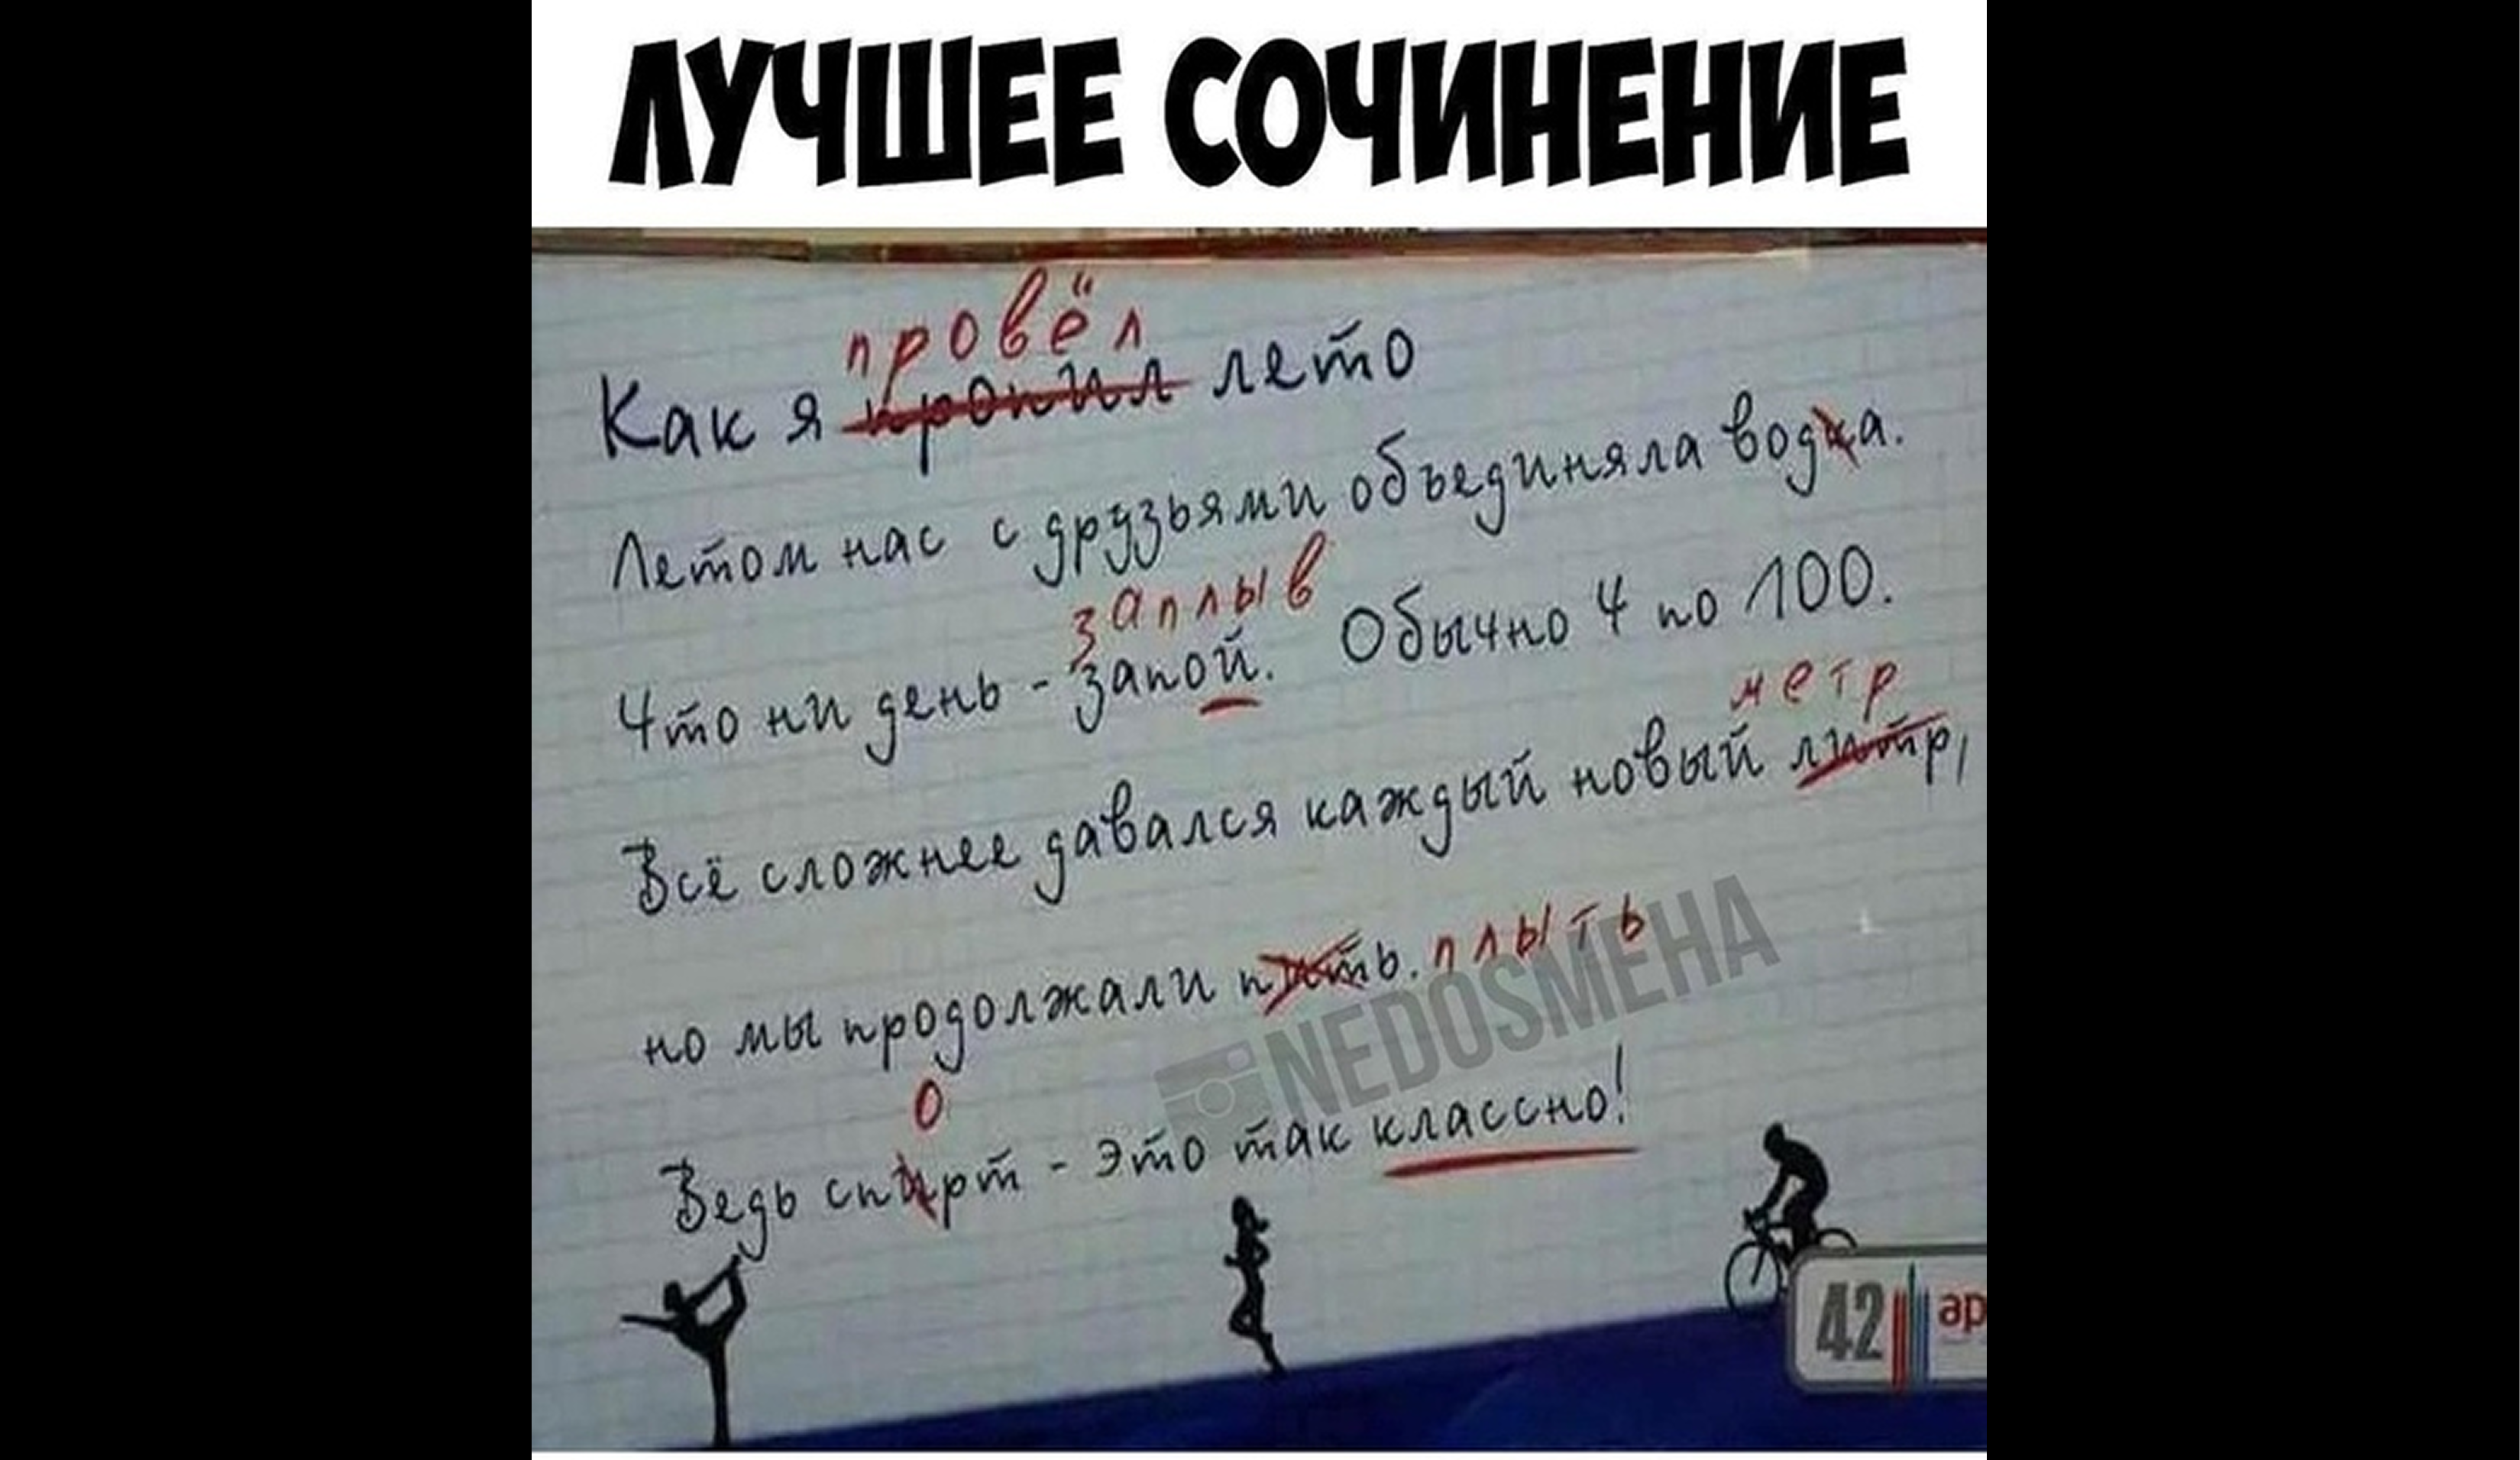 ЛУЧШЕЕ СОЧИНЕНИЕ
провёл
Как я пропил лето
Летом нас с друзьями объединяла водка.
заплыв
Что ни день - запой. Обычно 4 по 100.
метр
Всё сложнее давался каждый новый литр,
но мы продолжали пить. плыть
NEDOSMEHA
о
Ведь спирт - это так классно!
42 ар